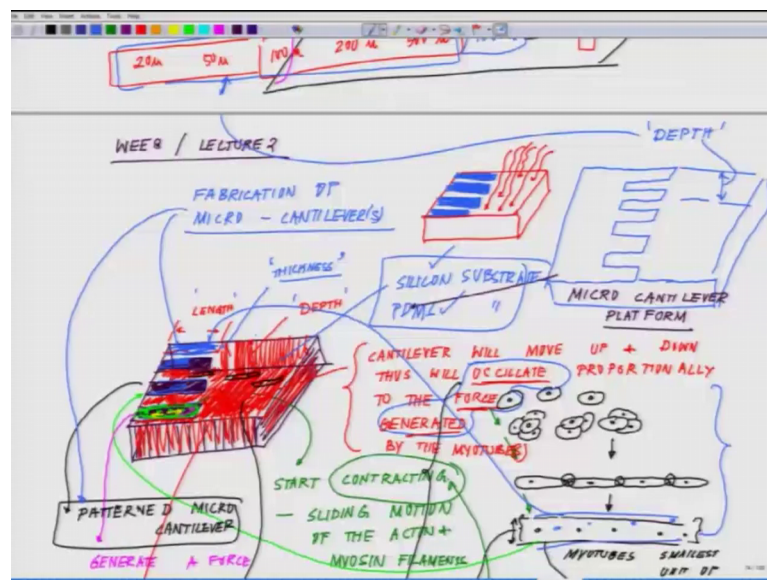 File Edit View Insert Actions Tools Help
20µ 50µ 100µ 200µ 500µ
WEEK 8 / LECTURE 2
'DEPTH'
FABRICATION OF
MICRO-CANTILEVER(S)
'THICKNESS'
'LENGTH' 'DEPTH'
SILICON SUBSTRATE
PDMS "
MICRO CANTILEVER
PLATFORM
CANTILEVER WILL MOVE UP + DOWN
THUS WILL OCCILLATE PROPORTIONALLY
TO THE FORCE
GENERATED
BY THE MYOTUBES
START CONTRACTING
— SLIDING MOTION
OF THE ACTIN +
MYOSIN FILAMENTS
PATTERNED MICRO
CANTILEVER
GENERATE A FORCE
MYOTUBES SMALLEST
UNIT OF